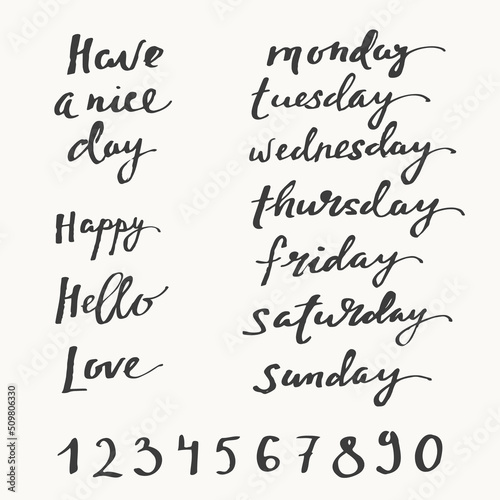 Have
a nice
day
Happy
Hello
Love
monday
tuesday
wednesday
thursday
friday
saturday
sunday
1 2 3 4 5 6 7 8 9 0
Adobe Stock | #509806330